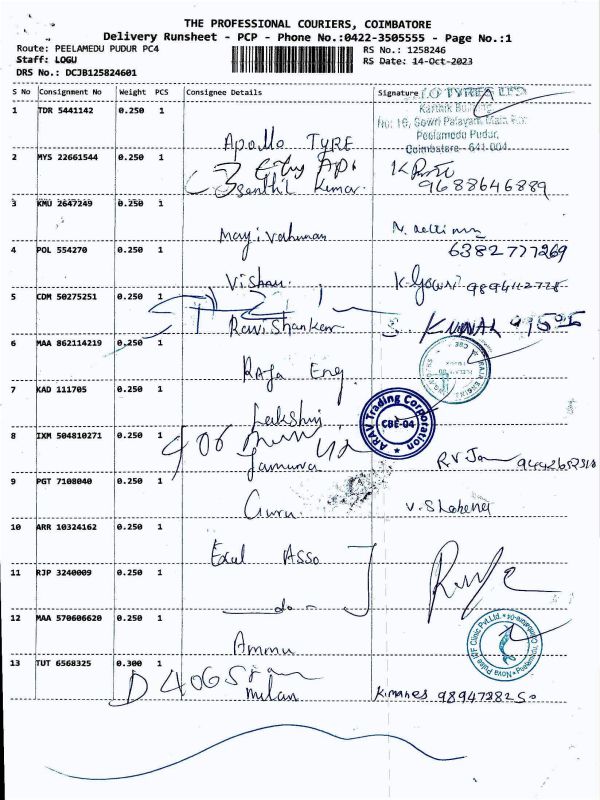 THE PROFESSIONAL COURIERS, COIMBATORE
Delivery Runsheet - PCP - Phone No.:0422-3505555 - Page No.:1
Route: PEELAMEDU PUDUR PC4 RS No.: 1258246
Staff: LOGU RS Date: 14-Oct-2023
DRS No.: DCJB125824601
S No Consignment No Weight PCS Consignee Details Signature
1 TDR 5441142 0.250 1
LO TYRES LTD
Karthik Building
No: 16, Gowri Palayam Main Rd.
Peelamedu Pudur,
Coimbatore - 641 004.
Apollo TYRE
2 MYS 22661544 0.250 1
Senthil Kumar 9688646889
3 KMU 2647249 0.250 1
Mayivahanan
6382777269
4 POL 554270 0.250 1
Vishnu K. Gowri
5 CDM 50275251 0.250 1
Ravi Shankar KUNAL
6 MAA 862114219 0.250 1
Raja Eng.
7 KAD 111705 0.250 1
ARAV Trading Corporation
CBE-04
Lakshmi
8 IXM 504810271 0.250 1
406
Jamuna
9 PGT 7108040 0.250 1
Guru
10 ARR 10324162 0.250 1
Exul Asso
11 RJP 3240009 0.250 1
do
12 MAA 570606620 0.250 1
Nova Pulse IVF Clinic Pvt.Ltd.
Ammu
13 TUT 6568325 0.300 1
D 406
Milan